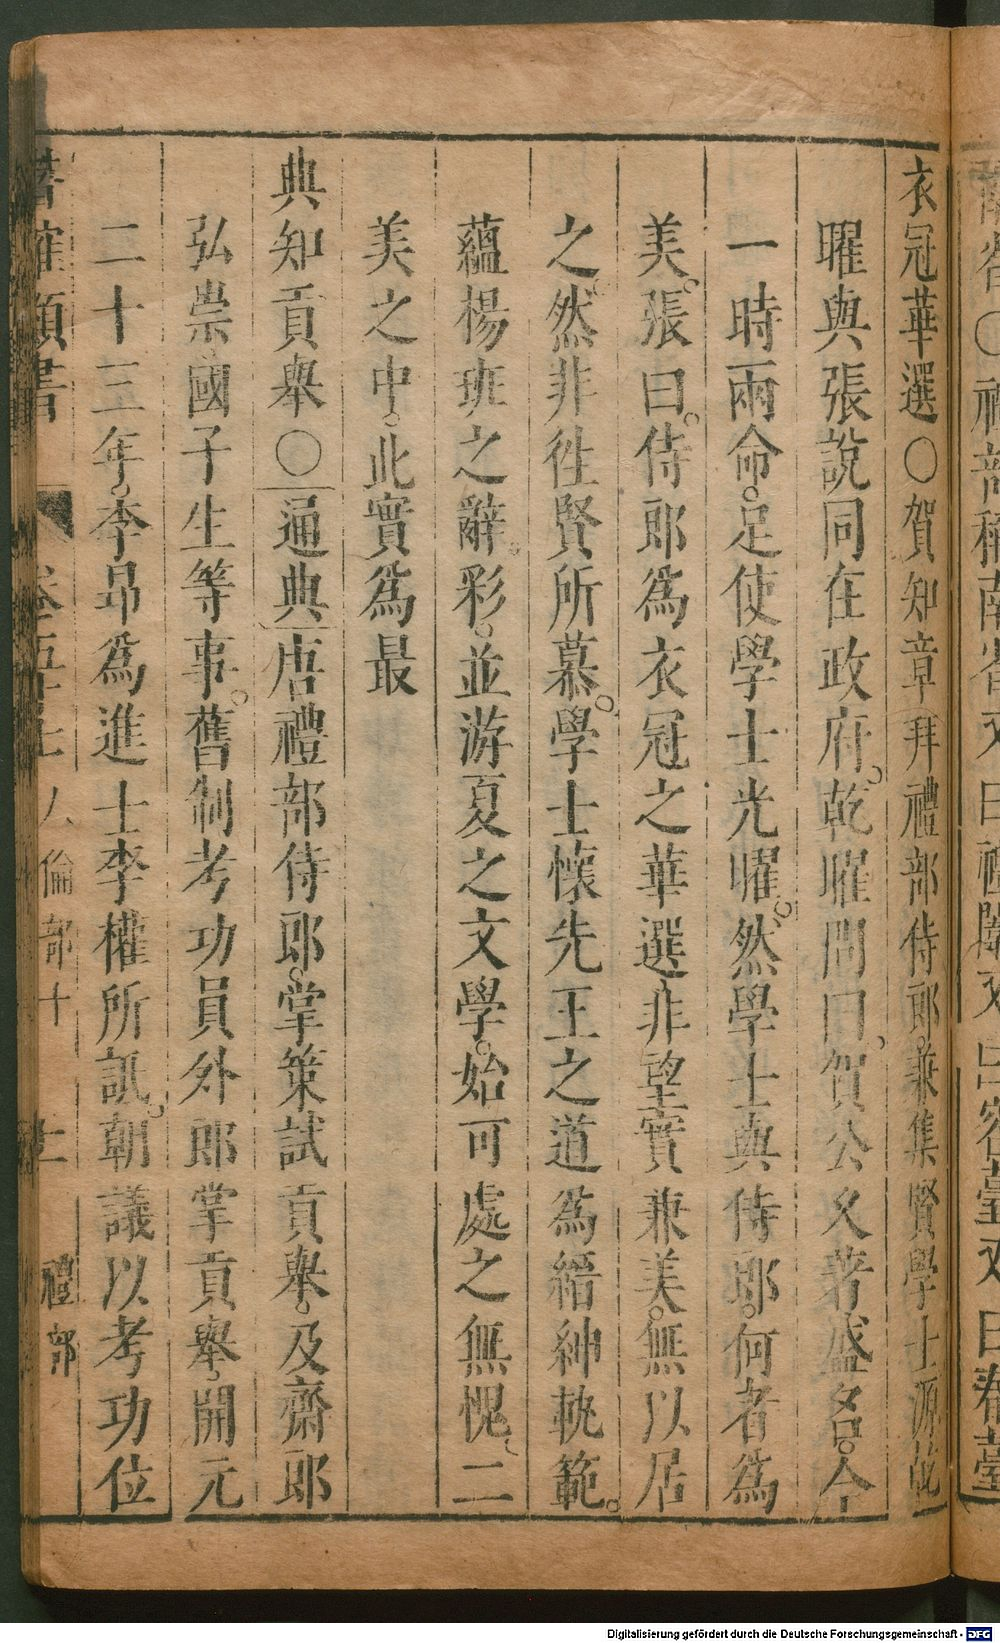 衣冠華選〇賀知章拜禮部侍郎。兼集賢學士源乾
曜與張說同在政府。乾曜問曰。賀公久著盛名。今
一時兩命。足使學士光曜。然學士與侍郎。何者為
美。張曰。侍郎為衣冠之華選非望實兼美。無以居
之。然非徃賢所慕。學士懷先王之道為縉紳軌範。
蘊楊班之辭。彩。並游夏之文學。始可處之無愧。二
美之中。此實為最
典知貢舉〇通典唐禮部侍郎。掌策試貢舉。及齋郎
弘崇國子生等事。舊制考功員外郎掌貢舉。開元
二十三年。李昂為進士李權所詆。朝議以考功位
類書
人倫部十
禮部
Digitalisierung gefördert durch die Deutsche Forschungsgemeinschaft - DFG